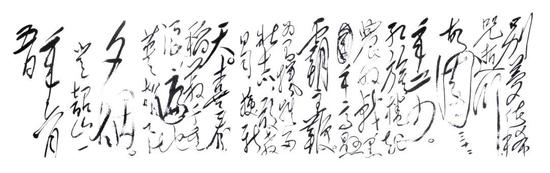 别梦依稀
咒逝川
故园三十二
年前。
红旗卷起
农奴戟黑
手高悬
霸主鞭
为有牺牲多
壮志敢教
日月换新
天。喜看
稻菽千重
浪遍地
英雄下
夕烟。